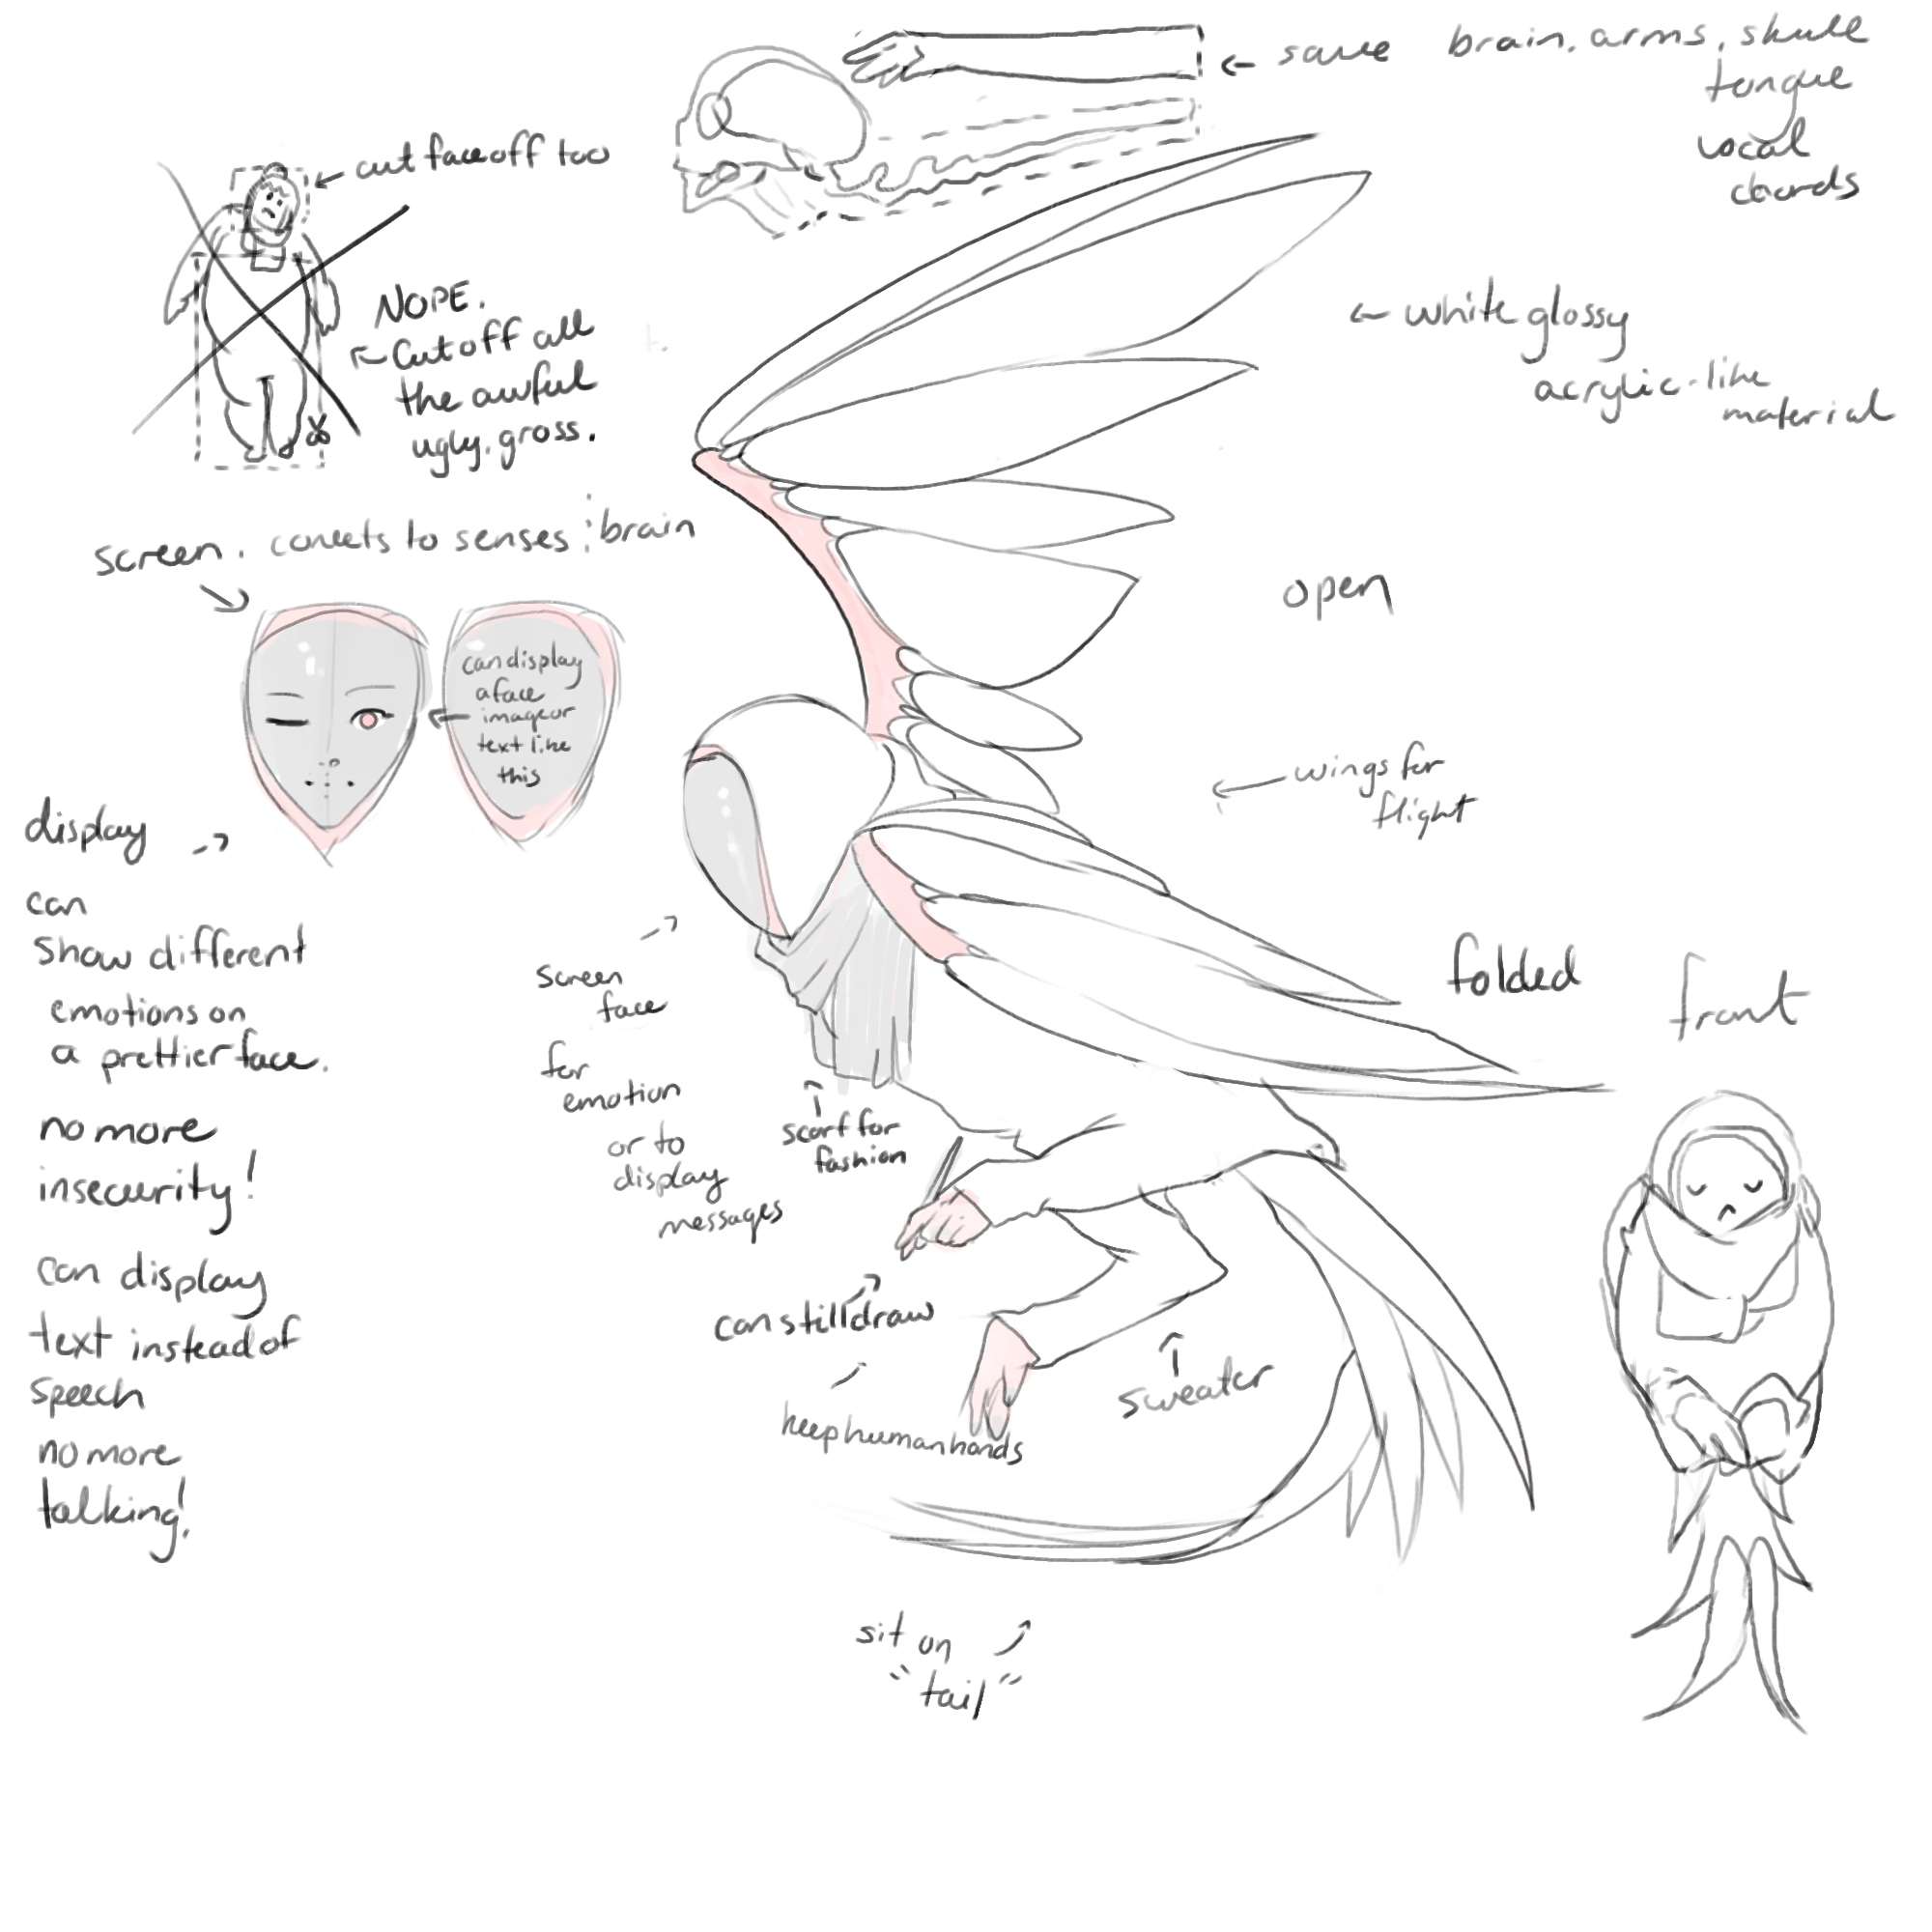 ← save brain, arms, skull
tongue
vocal
chords
← cut face off too
NOPE.
← Cut off all
the awful
ugly, gross.
← white glossy
acrylic-like
material
screen. conects to senses ; brain
can display
a face
image or
text like
this
open
← wings for
flight
display →
can
show different
emotions on
a prettier face.
no more
insecurity!
can display
text instead of
speech
no more
talking!
screen
face
for
emotion
or to
display
messages
scarf for
fashion
folded
front
can still draw
keep human hands
sweater
sit on
"tail"